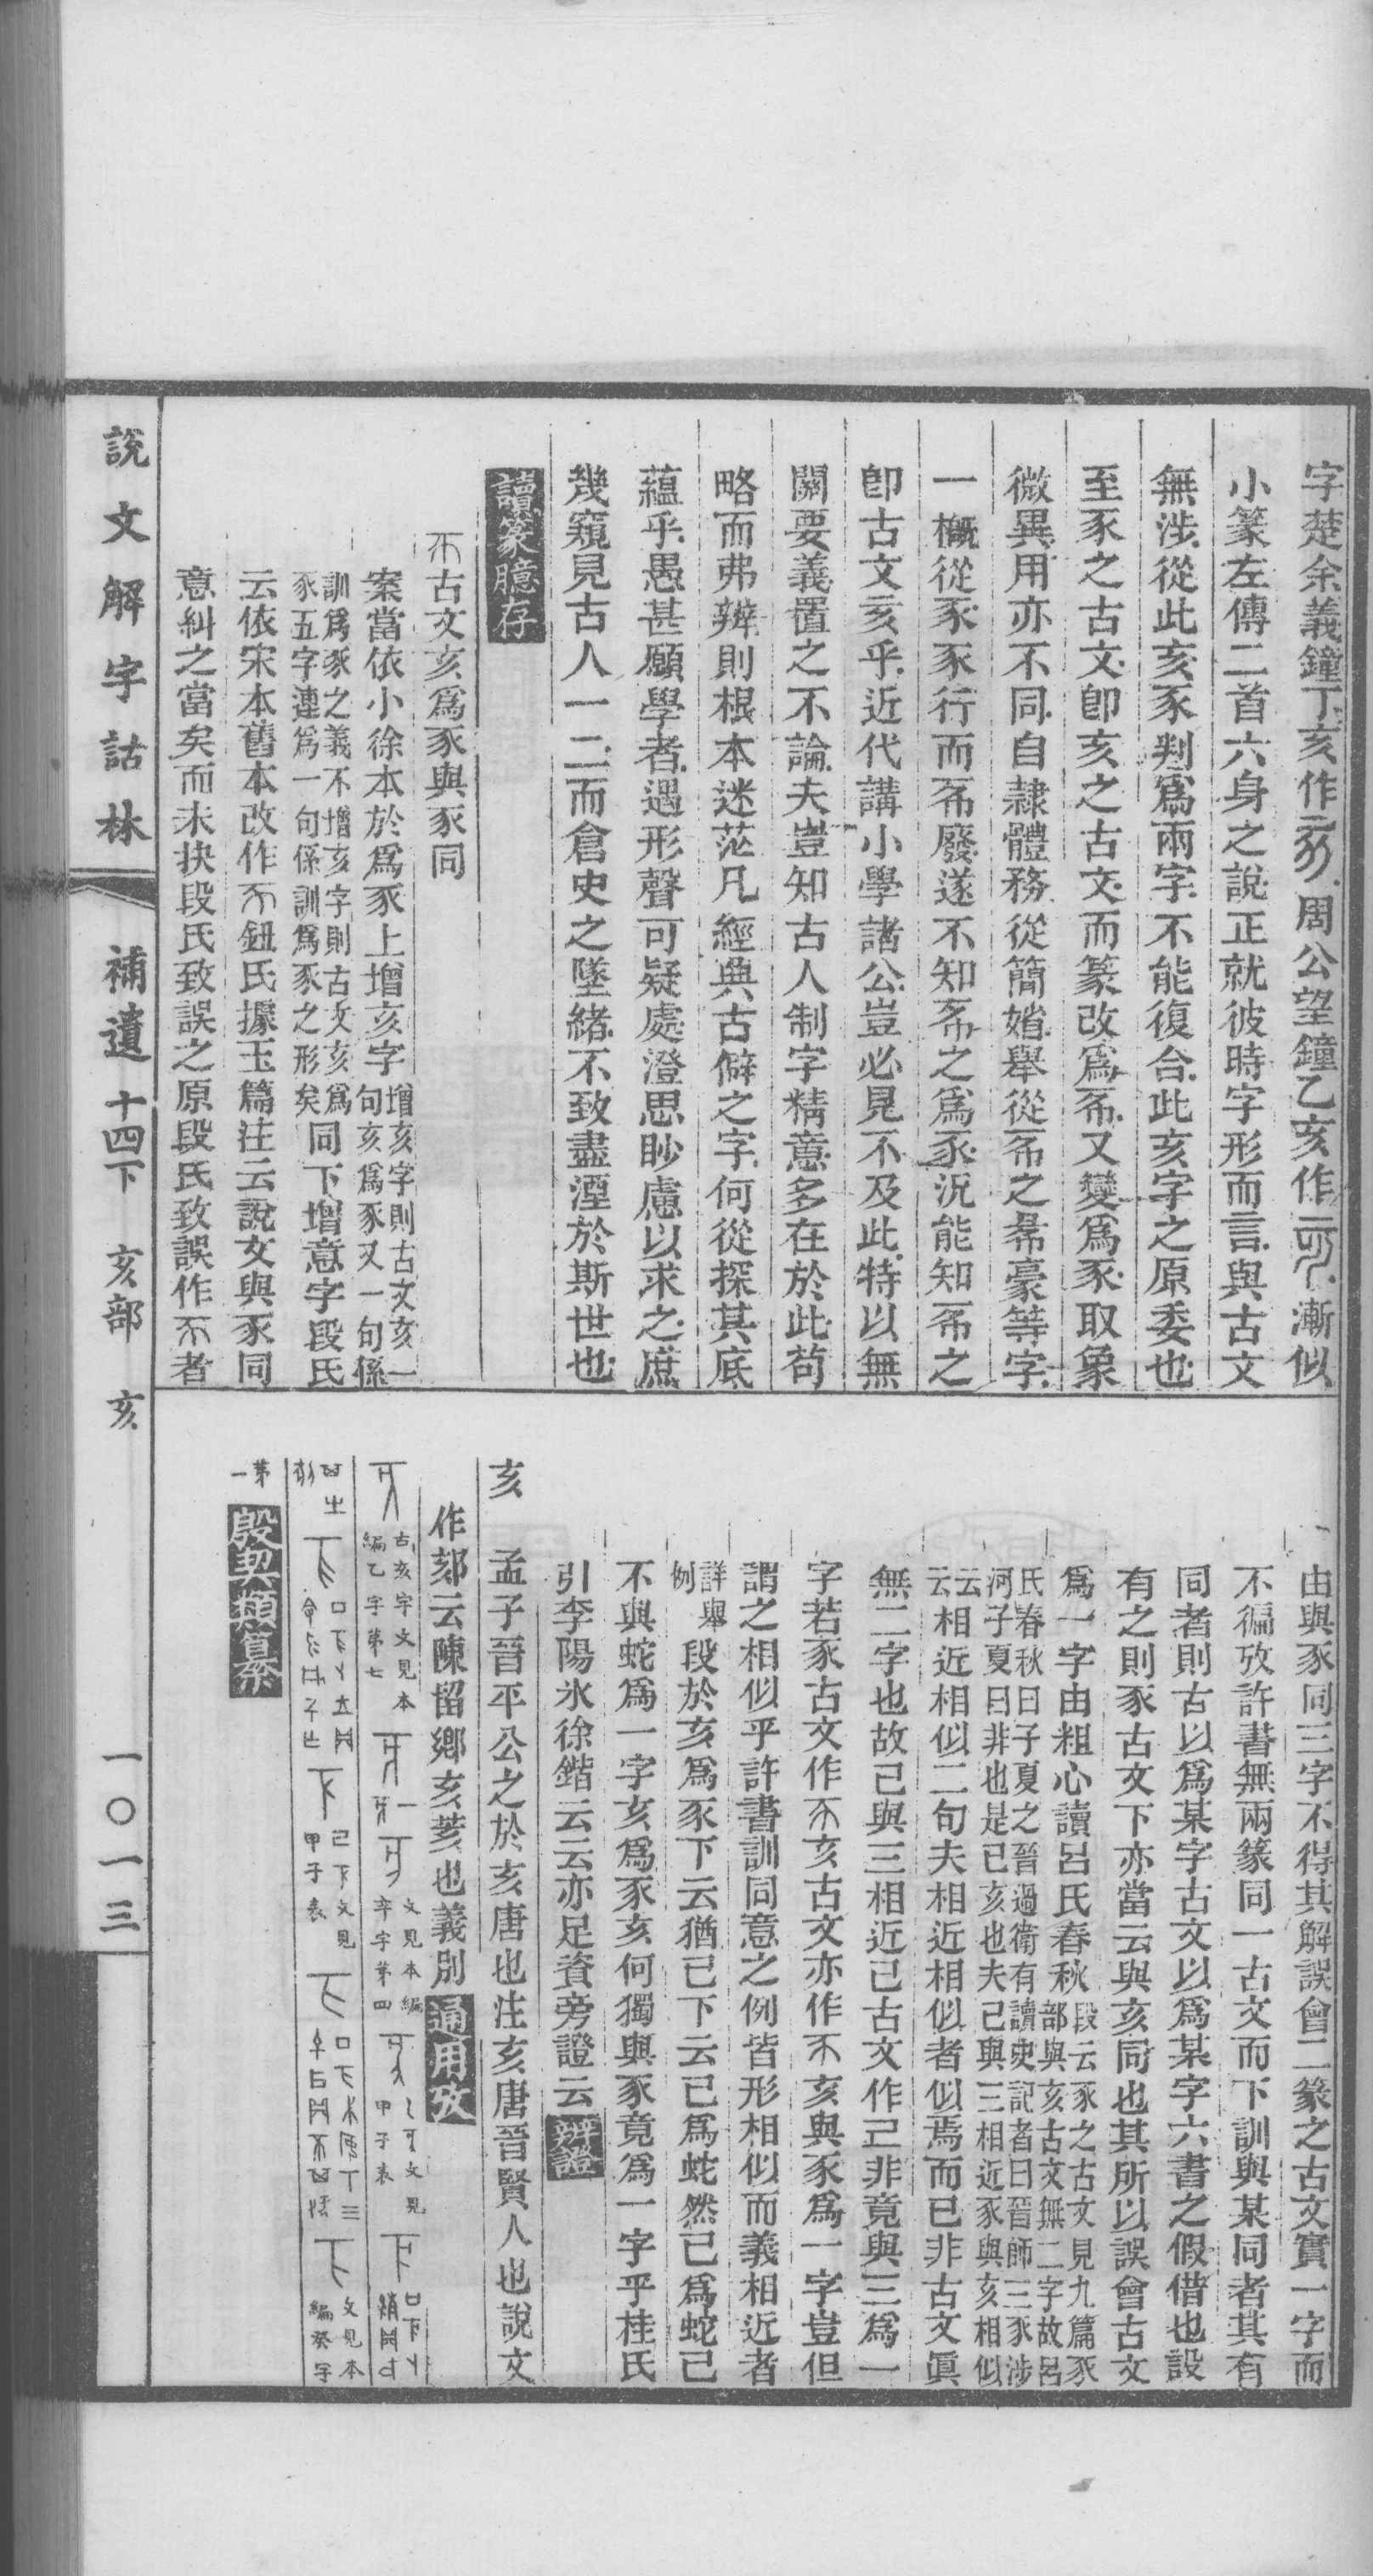 字楚余義鐘丁亥作周公望鐘乙亥作漸似
小篆左傳二首六身之說正就彼時字形而言與古文
無涉從此亥豕判爲兩字不能復合此亥字之原委也
至豕之古文卽亥之古文而篆改爲又變爲豕取象
微異用亦不同自隸體務從簡媘舉從之豪等字
一概從豕豕行而廢遂不知之爲豕況能知之
卽古文亥乎近代講小學諸公豈必見不及此特以無
關要義置之不論夫豈知古人制字精意多在於此苟
略而弗辨則根本迷茫凡經典古僻之字何從探其底
蘊乎愚甚願學者遇形聲可疑處澄思眇慮以求之庶
幾窺見古人一二而倉史之墜緖不致盡湮於斯世也
讀篆臆存
古文亥爲豕與豕同
案當依小徐本於爲豕上增亥字增亥字則古文亥一句亥爲豕又一句係
訓爲豕之義不增亥字則古文亥爲豕五字連爲一句係訓爲豕之形矣同下增意字段氏
云依宋本舊本改作鈕氏據玉篇注云說文與豕同
意糾之當矣而未抉段氏致誤之原段氏致誤作者
由與豕同三字不得其解誤會二篆之古文實一字而
不徧攷許書無兩篆同一古文而下訓與某同者其有
同者則古以爲某字古文以爲某字六書之假借也設
有之則豕古文下亦當云與亥同也其所以誤會古文
爲一字由粗心讀呂氏春秋段云豕之古文見九篇豕部與亥古文無二字故呂
氏春秋曰子夏之晉過衛有讀史記者曰晉師三豕涉河子夏曰非也是己亥也夫己與三相近豕與亥相似
云云相近相似二句夫相近相似者似焉而已非古文眞
無二字也故己與三相近己古文作非竟與三爲一
字若豕古文作亥古文亦作亥與豕爲一字豈但
謂之相似乎許書訓同意之例皆形相似而義相近者
詳舉例段於亥爲豕下云猶巳下云巳爲蛇然巳爲蛇巳
不與蛇爲一字亥爲豕亥何獨與豕竟爲一字乎桂氏
引李陽冰徐鍇云云亦足資旁證云辨證
亥　孟子晉平公之於亥唐也注亥唐晉賢人也說文
作郂云陳留鄉亥荄也義別通用攷
古亥字文見本編乙字第七　一　文見本編辛字第四　文見甲子表
己下文見甲子表　文見本編癸字
第一殷契類纂
說文解字詁林　補遺十四下　亥部　亥　一〇一三